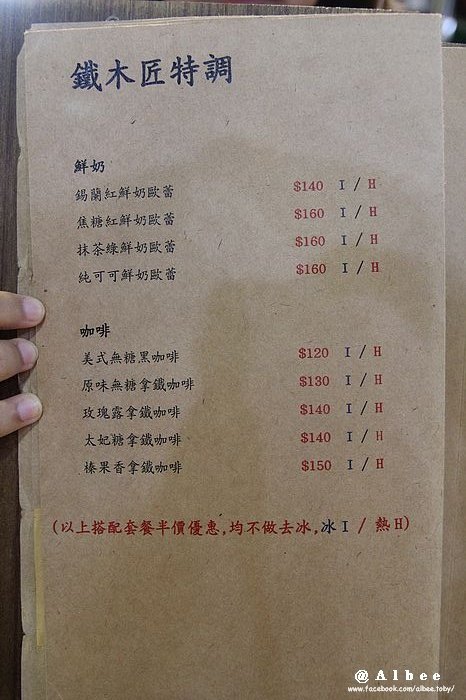 鐵木匠特調
鮮奶
錫蘭紅鮮奶歐蕾 $140 I / H
焦糖紅鮮奶歐蕾 $160 I / H
抹茶綠鮮奶歐蕾 $160 I / H
純可可鮮奶歐蕾 $160 I / H
咖啡
美式無糖黑咖啡 $120 I / H
原味無糖拿鐵咖啡 $130 I / H
玫瑰露拿鐵咖啡 $140 I / H
太妃糖拿鐵咖啡 $140 I / H
榛果香拿鐵咖啡 $150 I / H
(以上搭配套餐半價優惠,均不做去冰,冰I / 熱H)
@Albee
www.facebook.com/albee.toby/